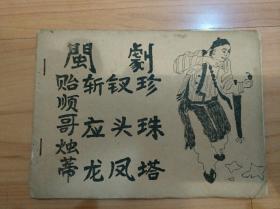 閩劇
贻顺哥烛蒂
斩应龙
钗头凤
珍珠塔